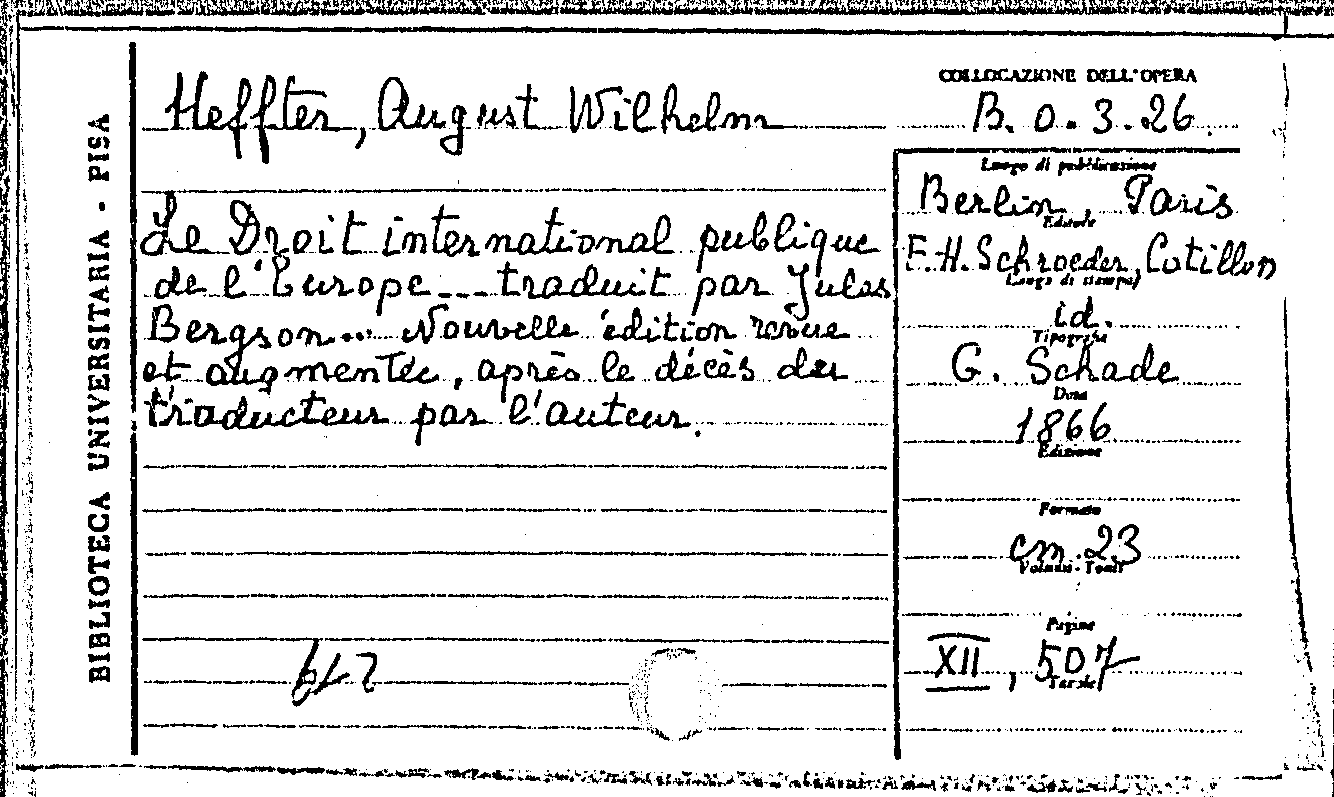 BIBLIOTECA UNIVERSITARIA - PISA
Heffter, August Wilhelm
COLLOCAZIONE DELL'OPERA
B. 0. 3. 26.
Le Droit international publique
de l'Europe ... traduit par Jules
Bergson... Nouvelle édition revue
et augmentée, après le décès du
traducteur par l'auteur.
Luogo di pubblicazione
Berlin, Paris
Editore
F. H. Schroeder, Cotillon
Luogo di stampa
id.
Tipografia
G. Schade
Data
1866
Edizione
Formato
cm. 23
Volumi - Tomi
Pagine
XII, 507
Tavole